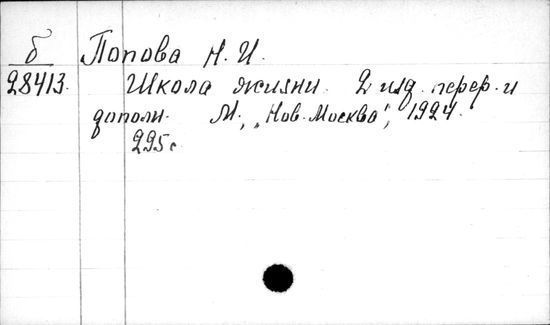 б Попова Н. И.
28413. Школа жизни. 2 изд. перер. и
дополн. М., „Нов. Москва", 1924.
295 с.